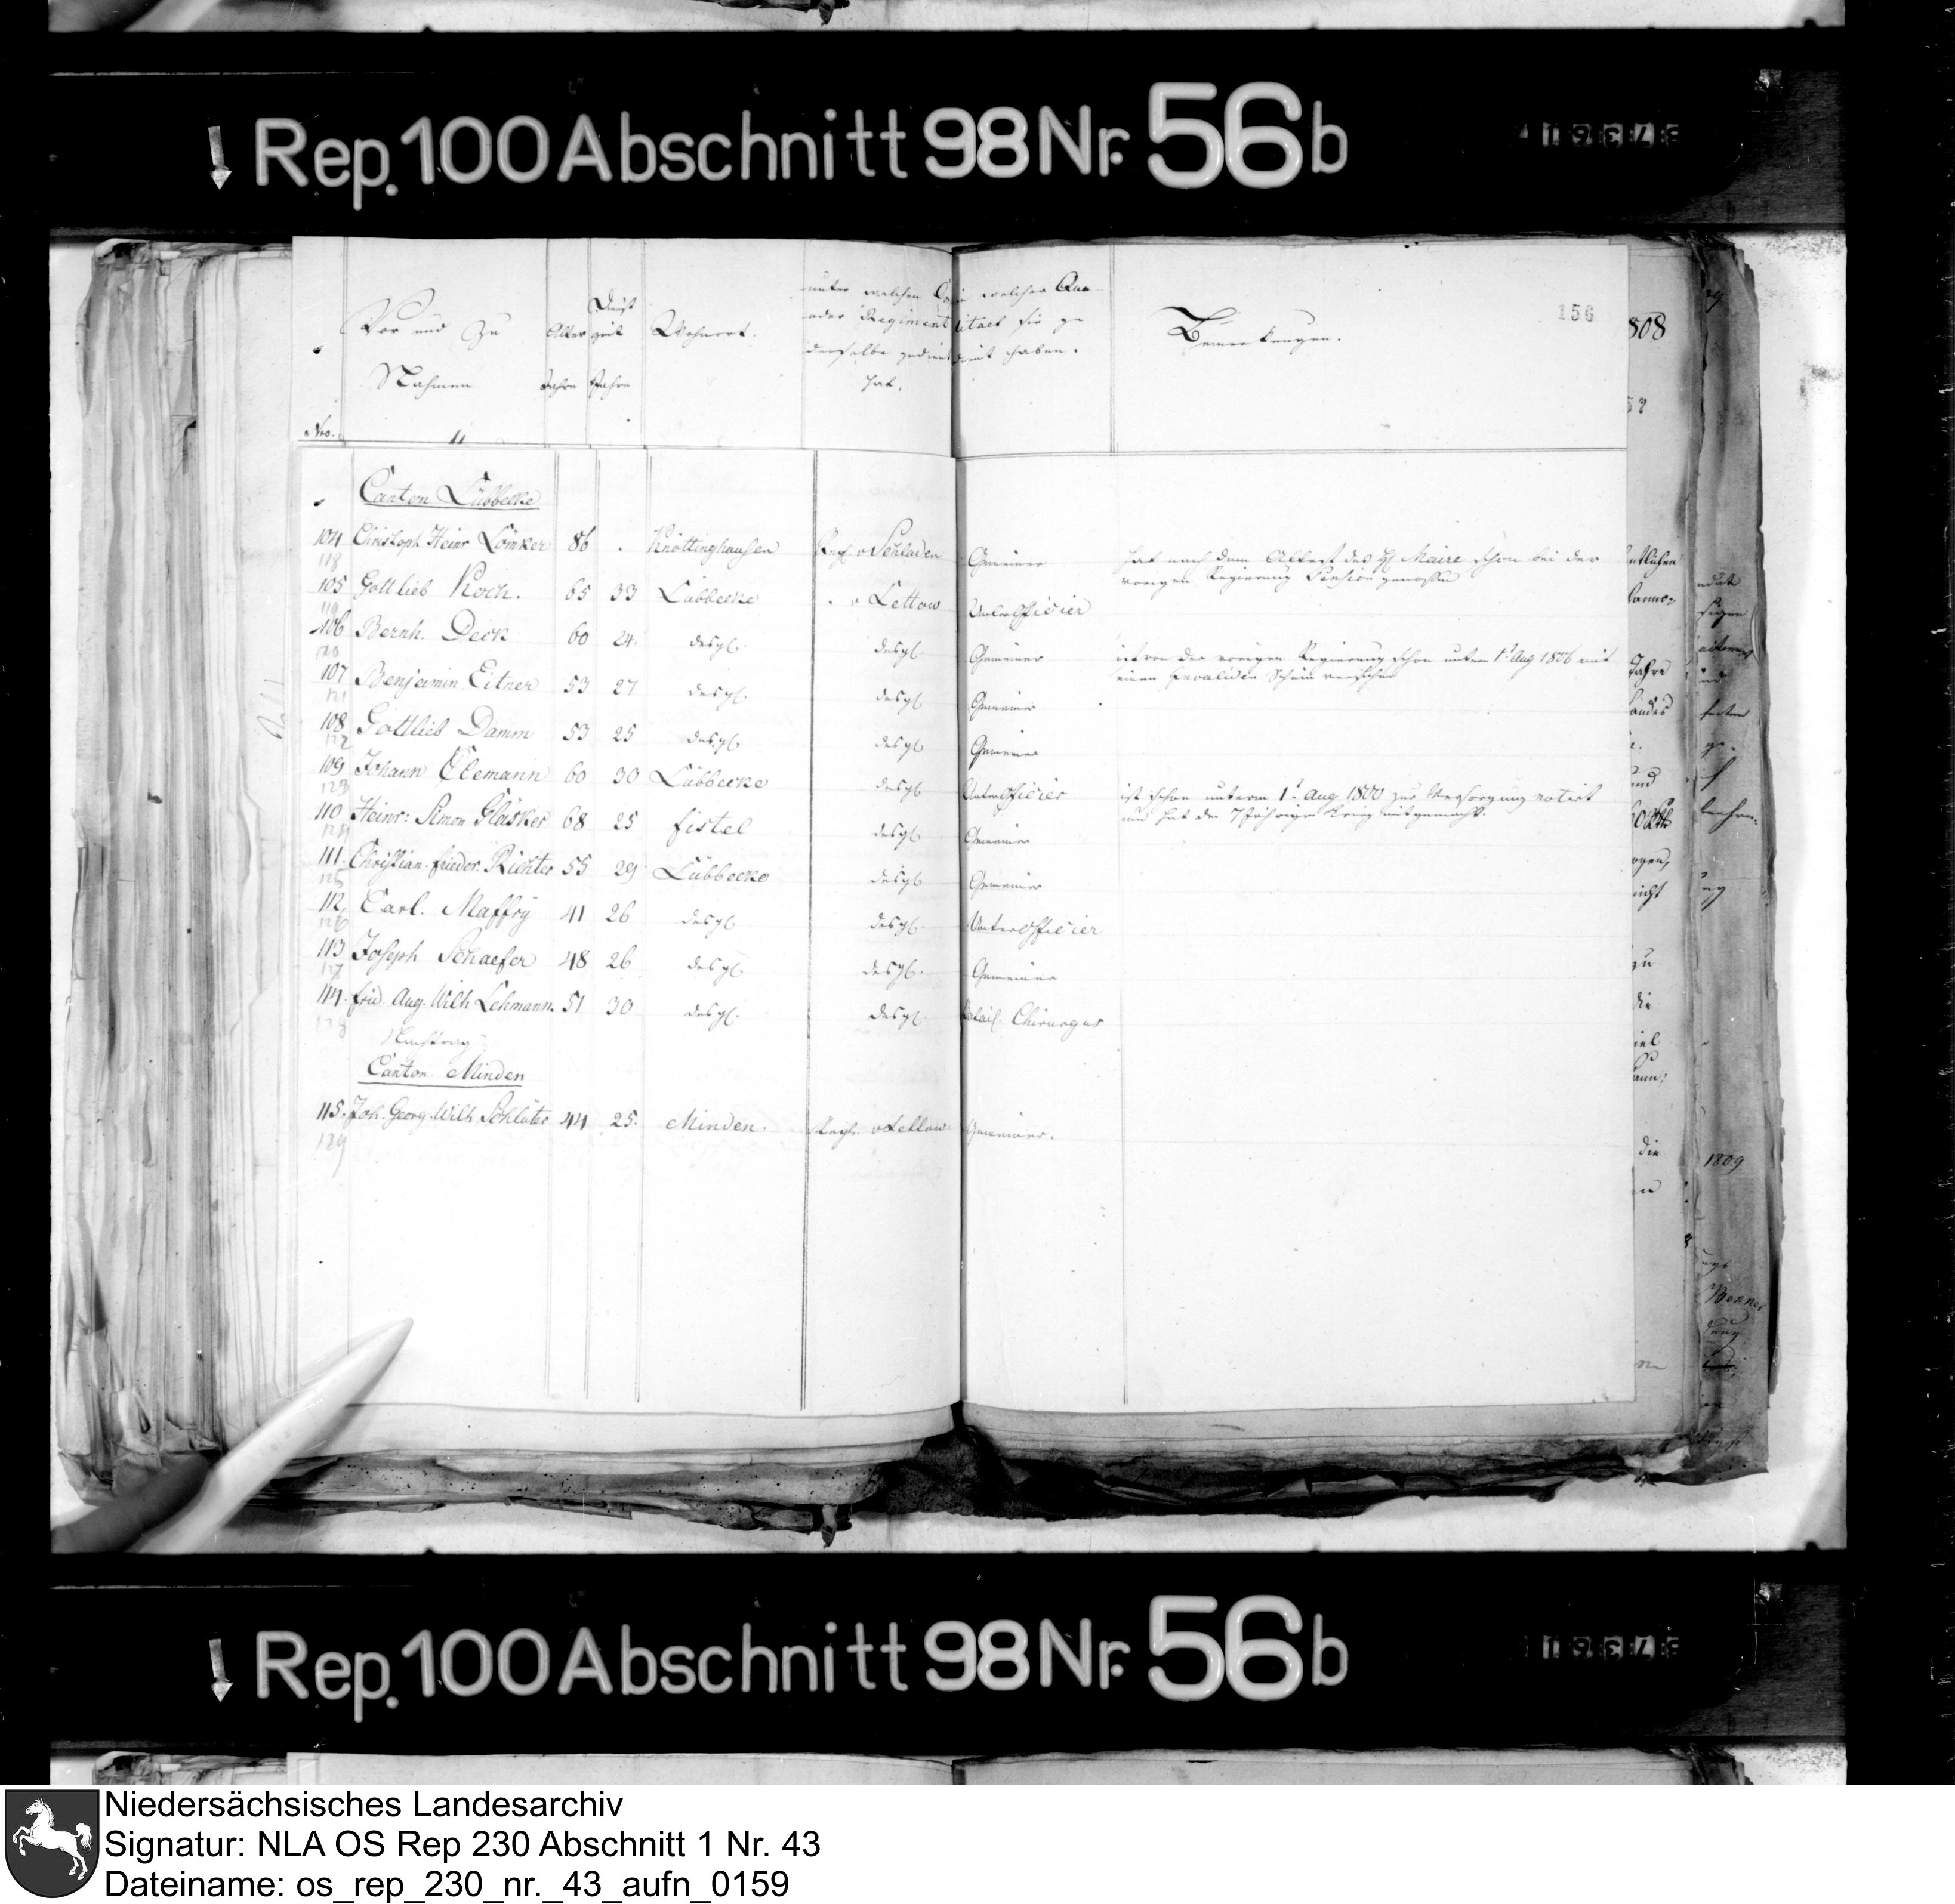 Rep. 100 Abschnitt 98 Nr. 56 b
156
Nro.
Vor und Zu
Nahmen
Alter
Jahre
Dienst
zeit
Jahre
Wohnort.
unter welchen
oder Regiment
derselbe gedient
hat.
in welcher Qua
litaet sie ge
dient haben.
Bemerkungen.
Canton Lübbecke
104 Christoph Heinr Lömker 86 . Knöttinghausen Regt. v Schladen Gemeiner hat nach dem Attest des H. Maire schon bei der
118 vorigen Regierung Pension genossen
105 Gottlieb Koch. 65 33 Lübbecke " v Lettow Unterofficier
119
106 Bernh. Deck 60 24. desgl. desgl. Gemeiner ist von der vorigen Regierung schon unterm 1t Aug 1806 mit
120 einen Invaliden Schein versehen
107 Benjeimin Eitner 53 27 desgl. desgl. Gemeiner
121
108 Gottlieb Damm 53 25 desgl. desgl. Gemeiner
122
109 Johann Clemann 60 30 Lübbecke desgl. Unterofficier ist schon unterm 1t Aug 1800 zur Versorgung notirt
123 und hat den 7jährigen Krieg mitgemacht.
110 Heinr: Simon Gläsker 68 25 Fistel desgl. Gemeiner
124
111. Christian Frieder. Richter 55 29 Lübbecke desgl. Gemeiner
125
112 Carl. Maffry 41 26 desgl. desgl. Unterofficier
126
113 Joseph Schaefer 48 26 desgl. desgl. Gemeiner
127
114. Frid. Aug. Wilh Lehmann. 51 30 desgl. desgl. Chirurgus
128
Nachtrag
Canton Minden
115. Joh. Georg Wilh Schlüter 44 25. Minden. Regt. v Lettow Gemeiner.
129
808
1809
Rep. 100 Abschnitt 98 Nr. 56 b
Niedersächsisches Landesarchiv
Signatur: NLA OS Rep 230 Abschnitt 1 Nr. 43
Dateiname: os_rep_230_nr._43_aufn_0159